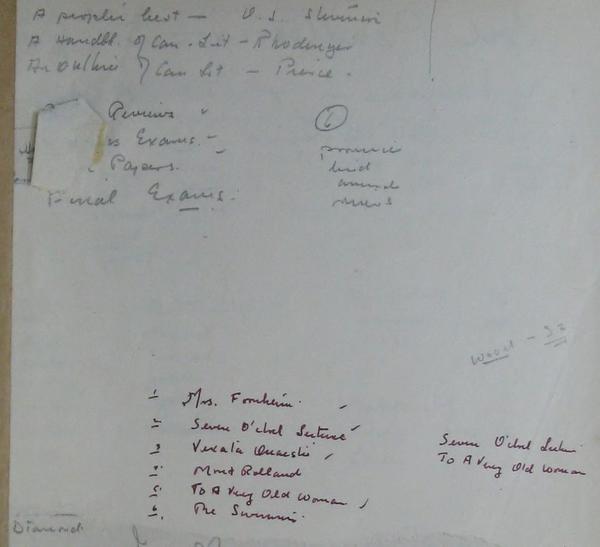 A people's best - O. J. Stevenson
A Handbk. of Can. Lit - Rhodenizer
An Outline of Can Lit - Pierce.
Reviews
Exams.
Papers.
Final Exams.
1
Wood - 32
1 Mrs. Fornheim
2 Seven O'clock Lecture
3 Vexata Quaestio
4 Mont Rolland
5 To A Very Old Woman
6. The Swimmer
Seven O'clock Lecture
To A Very Old Woman
Diamond